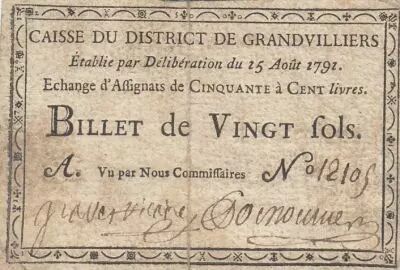 CAISSE DU DISTRICT DE GRANDVILLIERS
Établie par Délibération du 15 Août 1791.
Echange d'Aſſignats de CINQUANTE à CENT livres.
BILLET de VINGT ſols.
A. Vu par Nous Commiſſaires No 12105